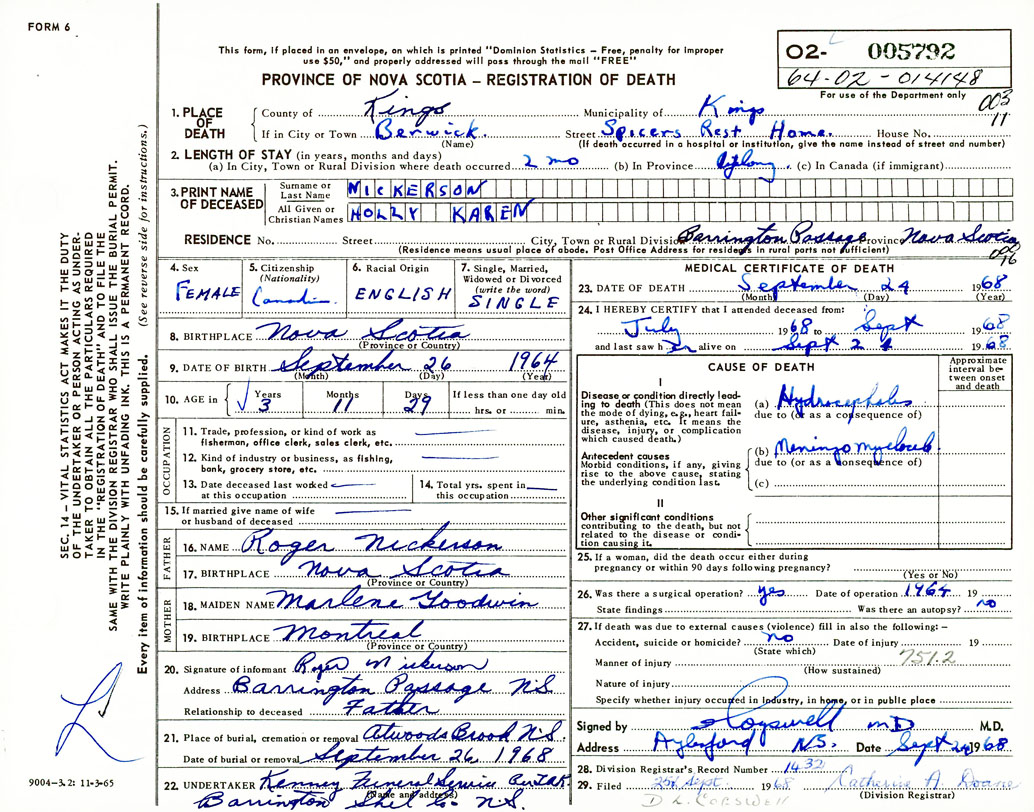 FORM 6
This form, if placed in an envelope, on which is printed "Dominion Statistics – Free, penalty for improper
use $50," and properly addressed will pass through the mail "FREE"
PROVINCE OF NOVA SCOTIA – REGISTRATION OF DEATH
02- 005792
64-02-014148
For use of the Department only
003
11
1. PLACE OF DEATH
County of Kings Municipality of Kings
If in City or Town Berwick Street Spicers Rest Home. House No.
(Name) (If death occurred in a hospital or institution, give the name instead of street and number)
2. LENGTH OF STAY (in years, months and days)
(a) In City, Town or Rural Division where death occurred 2 mo (b) In Province lifelong (c) In Canada (if immigrant)
3. PRINT NAME OF DECEASED
Surname or Last Name NICKERSON
All Given or Christian Names HOLLY KAREN
RESIDENCE No. Street City, Town or Rural Division Barrington Passage Province Nova Scotia
(Residence means usual place of abode. Post Office Address for residents in rural parts not sufficient)
4. Sex FEMALE
5. Citizenship (Nationality) Canadian
6. Racial Origin ENGLISH
7. Single, Married, Widowed or Divorced (write the word) SINGLE
8. BIRTHPLACE Nova Scotia
(Province or Country)
9. DATE OF BIRTH September 26 1964
(Month) (Day) (Year)
10. AGE in Years 3 Months 11 Days 29 If less than one day old hrs. or min.
OCCUPATION
11. Trade, profession, or kind of work as
fisherman, office clerk, sales clerk, etc.
12. Kind of industry or business, as fishing,
bank, grocery store, etc.
13. Date deceased last worked
at this occupation
14. Total yrs. spent in
this occupation
15. If married give name of wife
or husband of deceased
FATHER
16. NAME Roger Nickerson
17. BIRTHPLACE Nova Scotia
(Province or Country)
MOTHER
18. MAIDEN NAME Marlene Goodwin
19. BIRTHPLACE Montreal
(Province or Country)
20. Signature of informant Roger Nickerson
Address Barrington Passage NS
Relationship to deceased Father
21. Place of burial, cremation or removal Atwoods Brook N.S.
Date of burial or removal September 26, 1968
22. UNDERTAKER Kenney Funeral Service
(Name and address)
Barrington Shel Co N.S.
MEDICAL CERTIFICATE OF DEATH
23. DATE OF DEATH September 24 1968
(Month) (Day) (Year)
24. I HEREBY CERTIFY that I attended deceased from:
July 1968 to Sept 1968
and last saw her alive on Sept 24 1968
CAUSE OF DEATH
Approximate interval between onset and death
I
Disease or condition directly leading to death (This does not mean the mode of dying, e.g., heart failure, asthenia, etc. It means the disease, injury, or complication which caused death.)
(a) Hydrocephalus
due to (or as a consequence of)
Antecedent causes
Morbid conditions, if any, giving rise to the above cause, stating the underlying condition last.
(b) Meningo myelocele
due to (or as a consequence of)
(c)
II
Other significant conditions
contributing to the death, but not related to the disease or condition causing it.
25. If a woman, did the death occur either during
pregnancy or within 90 days following pregnancy?
(Yes or No)
26. Was there a surgical operation? yes Date of operation 1964 19
State findings Was there an autopsy? no
27. If death was due to external causes (violence) fill in also the following:–
Accident, suicide or homicide? no Date of injury 19
(State which)
Manner of injury 751.2
(How sustained)
Nature of injury
Specify whether injury occurred in industry, in home, or in public place
Signed by Cogswell MD M.D.
Address Aylesford N.S. Date Sept 24 1968
28. Division Registrar's Record Number 1432
29. Filed 25th Sept. 1968 Catherine A Doane
(Division Registrar)
SEC. 14 – VITAL STATISTICS ACT MAKES IT THE DUTY
OF THE UNDERTAKER OR PERSON ACTING AS UNDER-
TAKER TO OBTAIN ALL THE PARTICULARS REQUIRED
IN THE "REGISTRATION OF DEATH" AND TO FILE THE
SAME WITH THE DIVISION REGISTRAR WHO SHALL ISSUE THE BURIAL PERMIT.
WRITE PLAINLY WITH UNFADING INK. THIS IS A PERMANENT RECORD.
Every item of information should be carefully supplied. (See reverse side for instructions.)
9004-3.2: 11-3-65